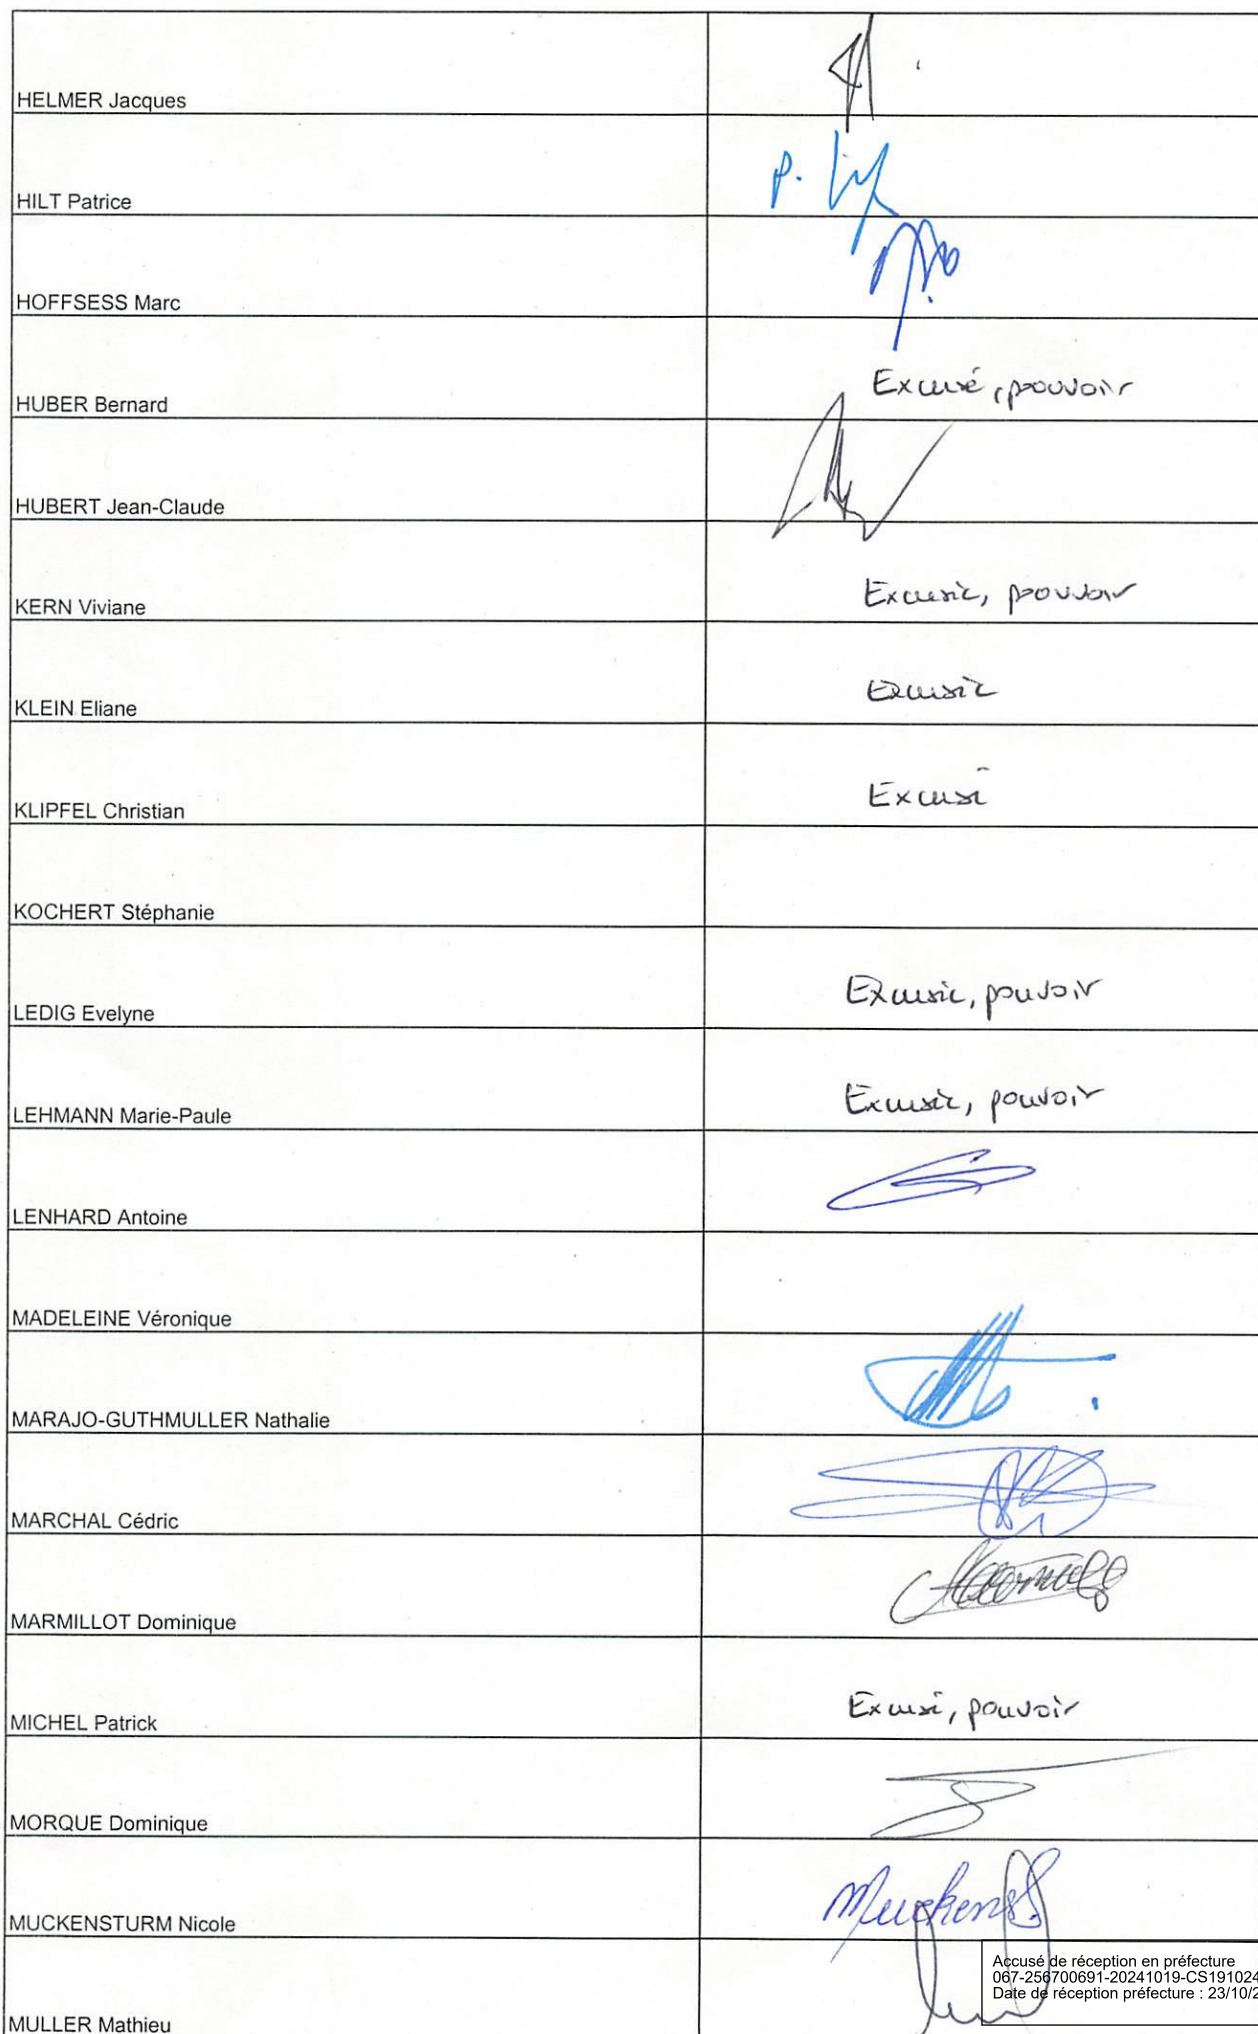 HELMER Jacques
HILT Patrice
P.
HOFFSESS Marc
HUBER Bernard
Excusé, pouvoir
HUBERT Jean-Claude
KERN Viviane
Excusée, pouvoir
KLEIN Eliane
Excusée
KLIPFEL Christian
Excusé
KOCHERT Stéphanie
LEDIG Evelyne
Excusée, pouvoir
LEHMANN Marie-Paule
Excusée, pouvoir
LENHARD Antoine
MADELEINE Véronique
MARAJO-GUTHMULLER Nathalie
MARCHAL Cédric
MARMILLOT Dominique
MICHEL Patrick
Excusé, pouvoir
MORQUE Dominique
MUCKENSTURM Nicole
MULLER Mathieu
Accusé de réception en préfecture
067-256700691-20241019-CS191024
Date de réception préfecture : 23/10/2